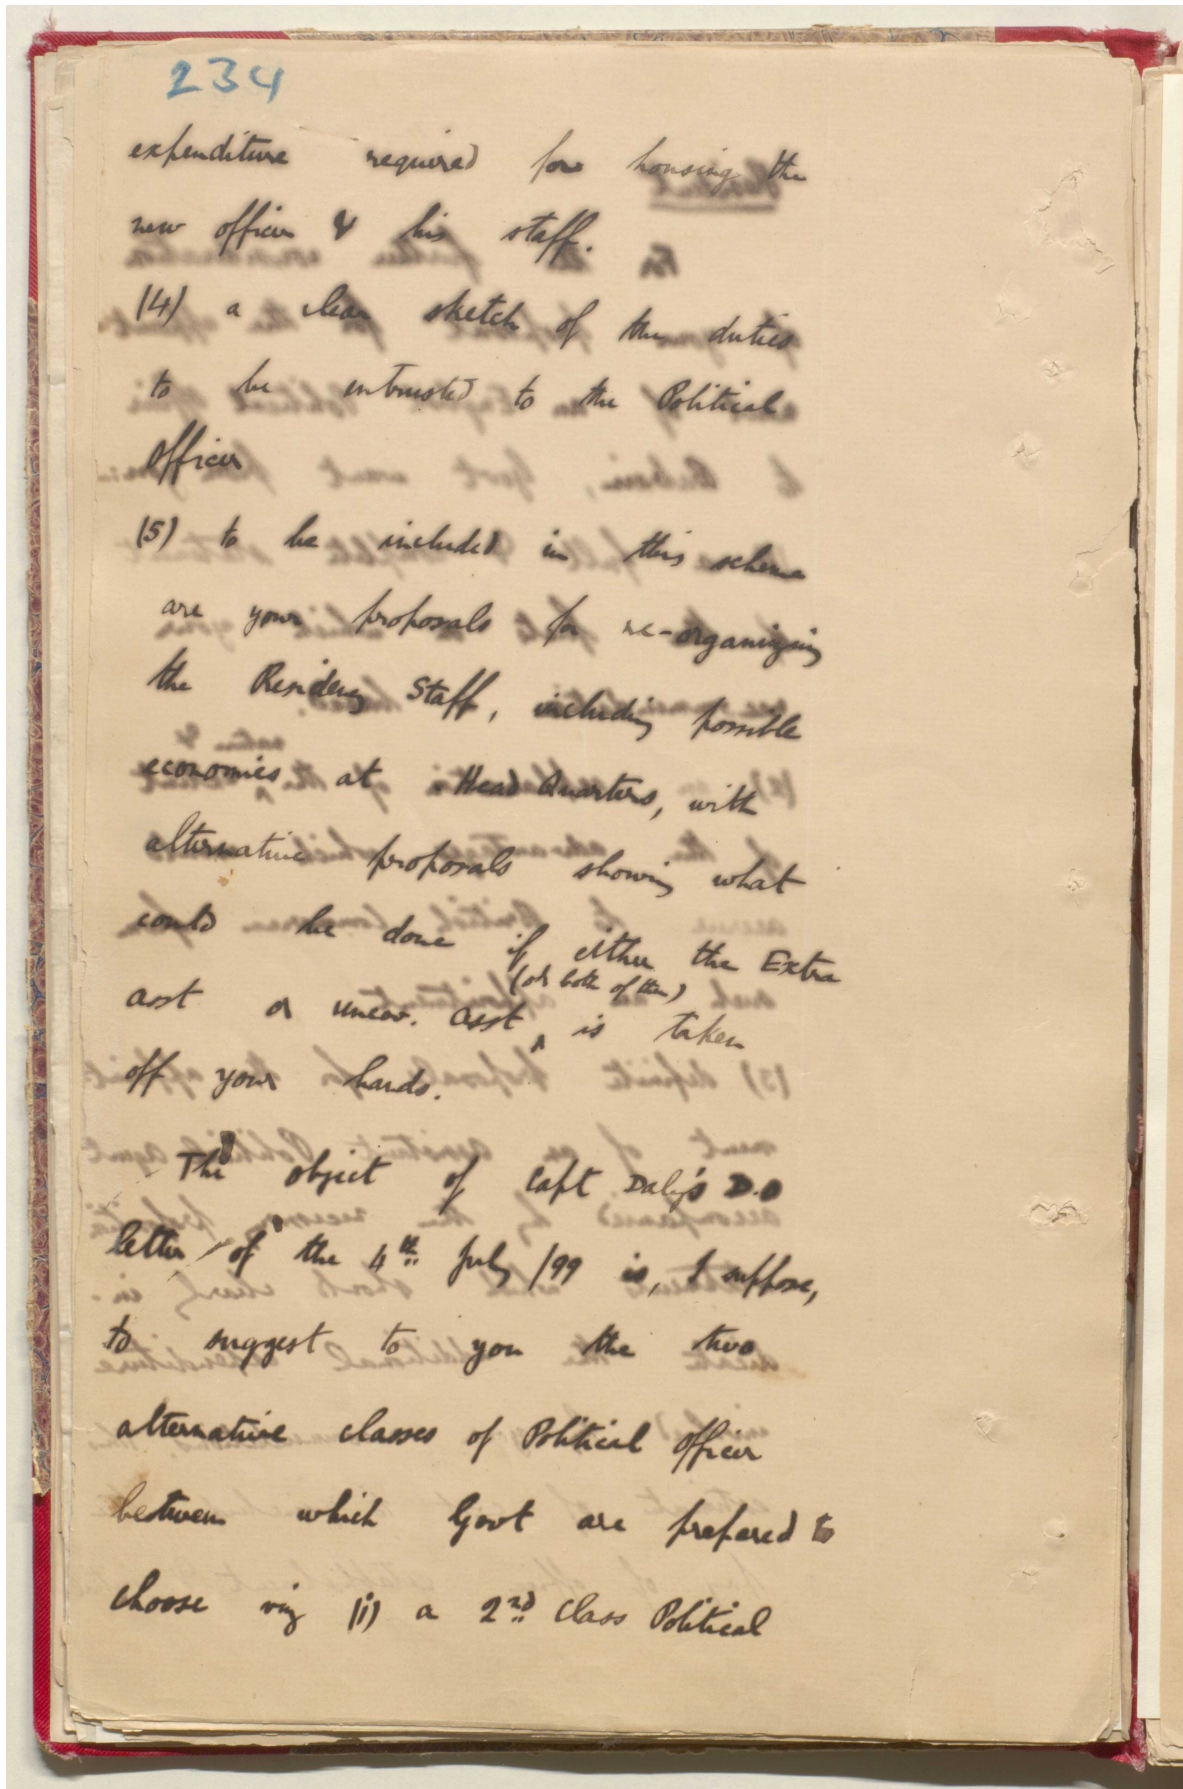 234
expenditure required for housing the
new officer & his staff.
(4) a clear sketch of the duties
to be entrusted to the Political
Officer
(5) to be included in this scheme
are your proposals for re-organizing
the Residency Staff, including possible
economies at Head Quarters, with
alternative proposals showing what
could be done if either the Extra
(or both of them)
asst or uncov. asst ^ is taken
off your hands.
The object of Capt Daly's D.O
letter of the 4th July /99 is, I suppose,
to suggest to you the two
alternative classes of Political Officer
between which Govt are prepared to
choose viz (i) a 2nd Class Political